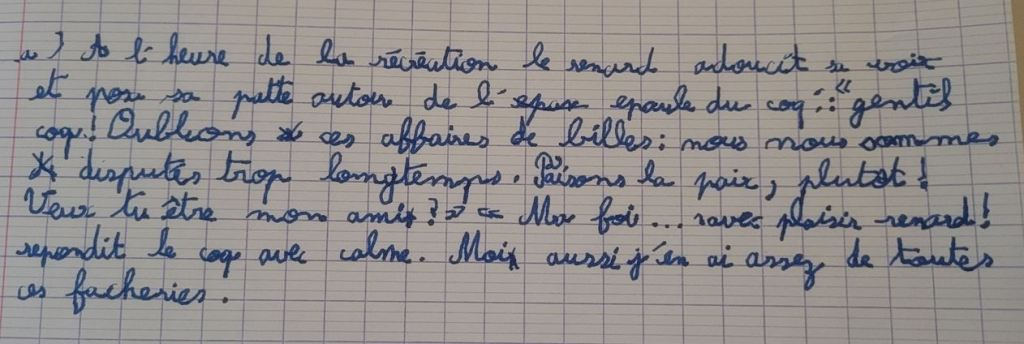 a) A l'heure de la récréation le renard adoucit sa voix
et pose sa patte autour de l'epaule du coq : "gentil
coq! Oublions ces affaires de billes: nous nous sommes
disputés trop longtemps. Faisons la paix, plutot!
Veux tu être mon ami?" « Ma foi... avec plaisir renard!
repondit le coq avec calme. Moi aussi j'en ai assez de toutes
ces facheries.